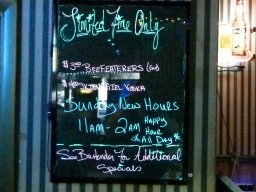 Limited Time Only
$3.00 BEEFEATERERS (ea)
GIRL VODKA
Sunday New Hours
11AM - 2AM Happy
Hour
*All Day*
See Bartender For Additional
Specials